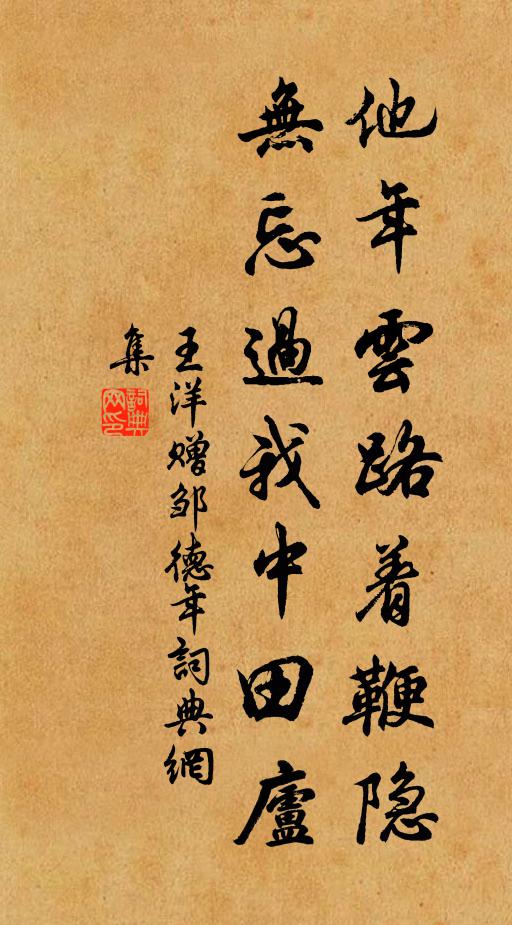 他年雲路着鞭隐
無忘過我中田廬
王洋赠邹德年詞典網
集
詞典网印